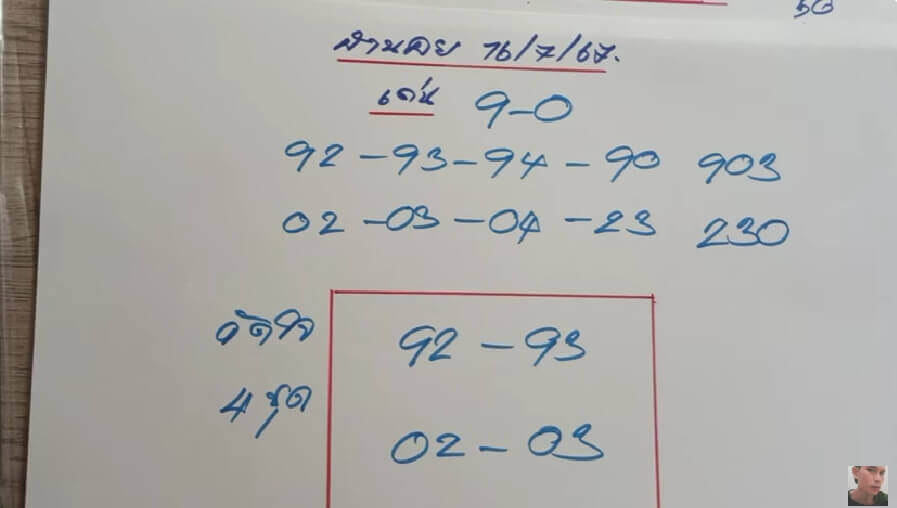 50
ฮานอย 16/7/67.
เด่น 9-0
92-93-94-90 903
02-03-04-23 230
จัดใจ 92-93
4 ชุด 02-03